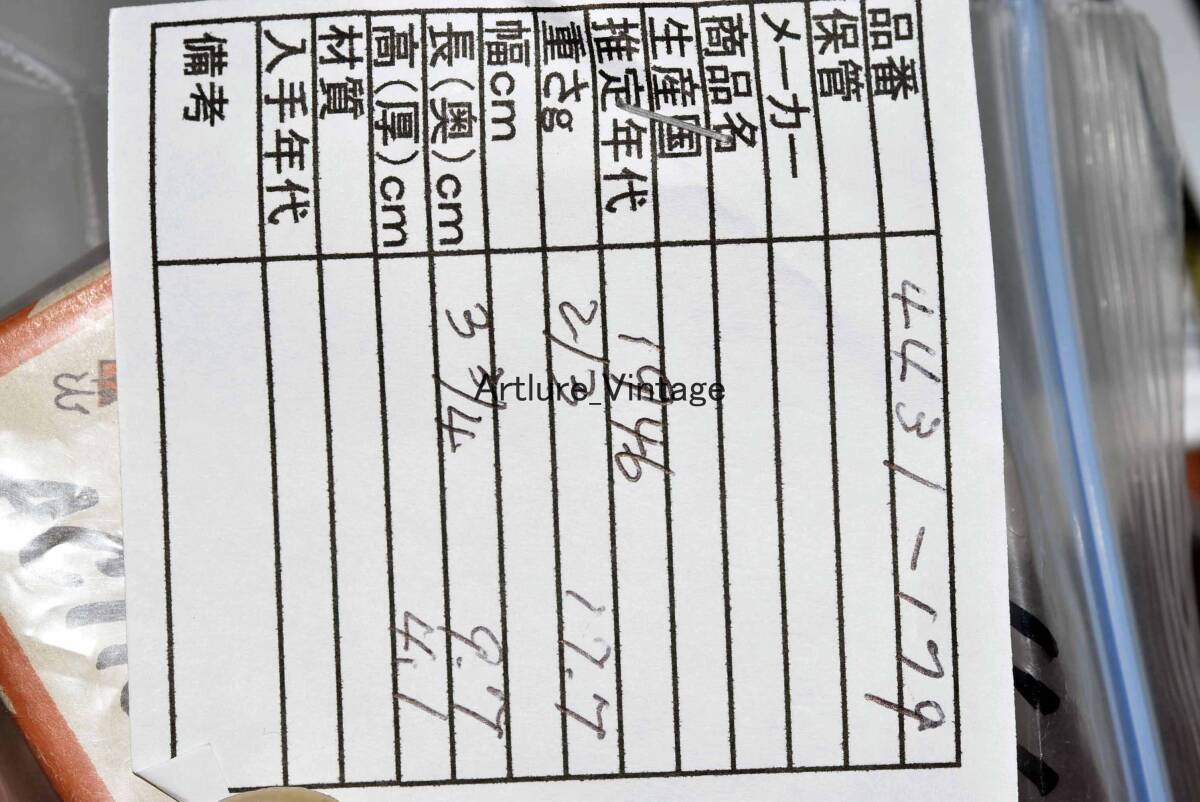 品番 4431-179
保管
メーカー
商品名
生産国
推定年代 1946
重さg 2/3 17.7
幅cm
長(奥)cm 3 3/4 9.7
高(厚)cm 4.1
材質
入手年代
備考
Artlure_Vintage